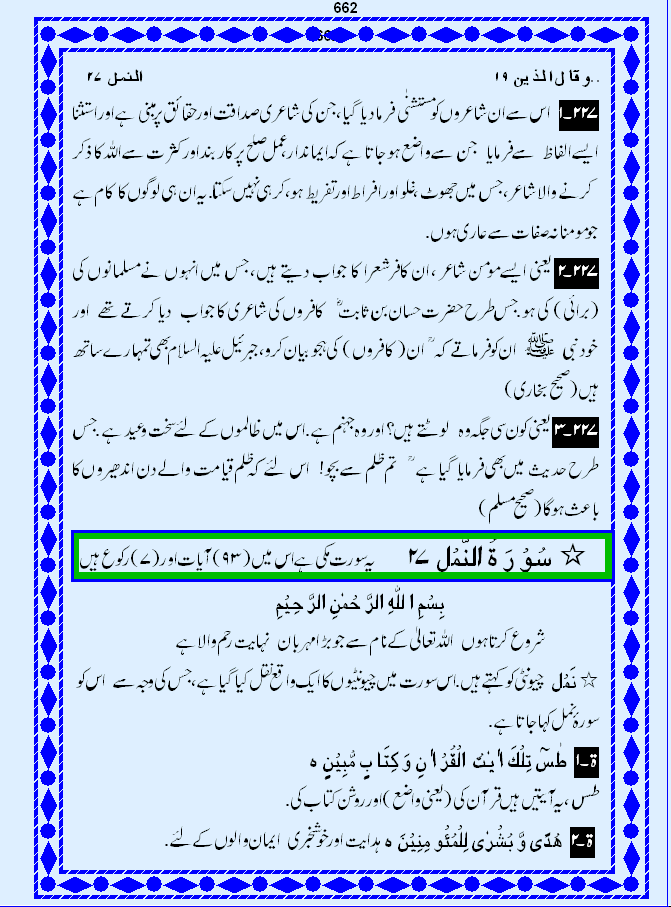 662
وقال الذین ۱۹ النمل ۲۷
۲۲۷۔۱ اس سے ان شاعروں کو مستثنٰی فرما دیا گیا، جن کی شاعری صداقت اور حقائق پر مبنی ہے اور استثنا
ایسے الفاظ سے فرمایا جن سے واضح ہو جاتا ہے کہ ایماندار، عمل صالح پر کاربند اور کثرت سے اللہ کا ذکر
کرنے والا شاعر، جس میں جھوٹ، غلو اور افراط اور تفریط ہو، کر ہی نہیں سکتا۔ یہ ان ہی لوگوں کا کام ہے
جو مومنانہ صفات سے عاری ہوں۔
۲۲۷۔۲ یعنی ایسے مومن شاعر، ان کافر شعرا کا جواب دیتے ہیں، جس میں انہوں نے مسلمانوں کی
(برائی) کی ہو۔ جس طرح حضرت حسان بن ثابتؓ کافروں کی شاعری کا جواب دیا کرتے تھے اور
خود نبی ﷺ ان کو فرماتے کہ " ان (کافروں) کی ہجو بیان کرو، جبرئیل علیہ السلام بھی تمہارے ساتھ
ہیں (صحیح بخاری)
۲۲۷۔۳ یعنی کون سی جگہ وہ لوٹتے ہیں؟ اور وہ جہنم ہے۔ اس میں ظالموں کے لئے سخت وعید ہے جس
طرح حدیث میں بھی فرمایا گیا ہے " تم ظلم سے بچو! اس لئے کہ ظلم قیامت والے دن اندھیروں کا
باعث ہوگا (صحیح مسلم)
☆ سُوْرَةُ النَّمْل ۲۷ یہ سورت مکی ہے اس میں (۹۳) آیات اور (۷) رکوع ہیں
بِسْمِ اللّٰهِ الرَّحْمٰنِ الرَّحِيْمِ
شروع کرتا ہوں اللہ تعالٰی کے نام سے جو بڑا مہربان نہایت رحم والا ہے
☆ نَمْل چیونٹی کو کہتے ہیں۔ اس سورت میں چیونٹیوں کا ایک واقع نقل کیا گیا ہے، جس کی وجہ سے اس کو
سورۂ نمل کہا جاتا ہے۔
ۃ۔۱ طٰسٓ تِلْكَ اٰيٰتُ الْقُرْاٰنِ وَكِتَابٍ مُّبِيْنٍ ه
طٰس، یہ آیتیں ہیں قرآن کی (یعنی واضع) اور روشن کتاب کی۔
ۃ۔۲ هُدًى وَّ بُشْرٰى لِلْمُئْومِنِيْنَ ه ہدایت اور خوشخبری ایمان والوں کے لئے۔